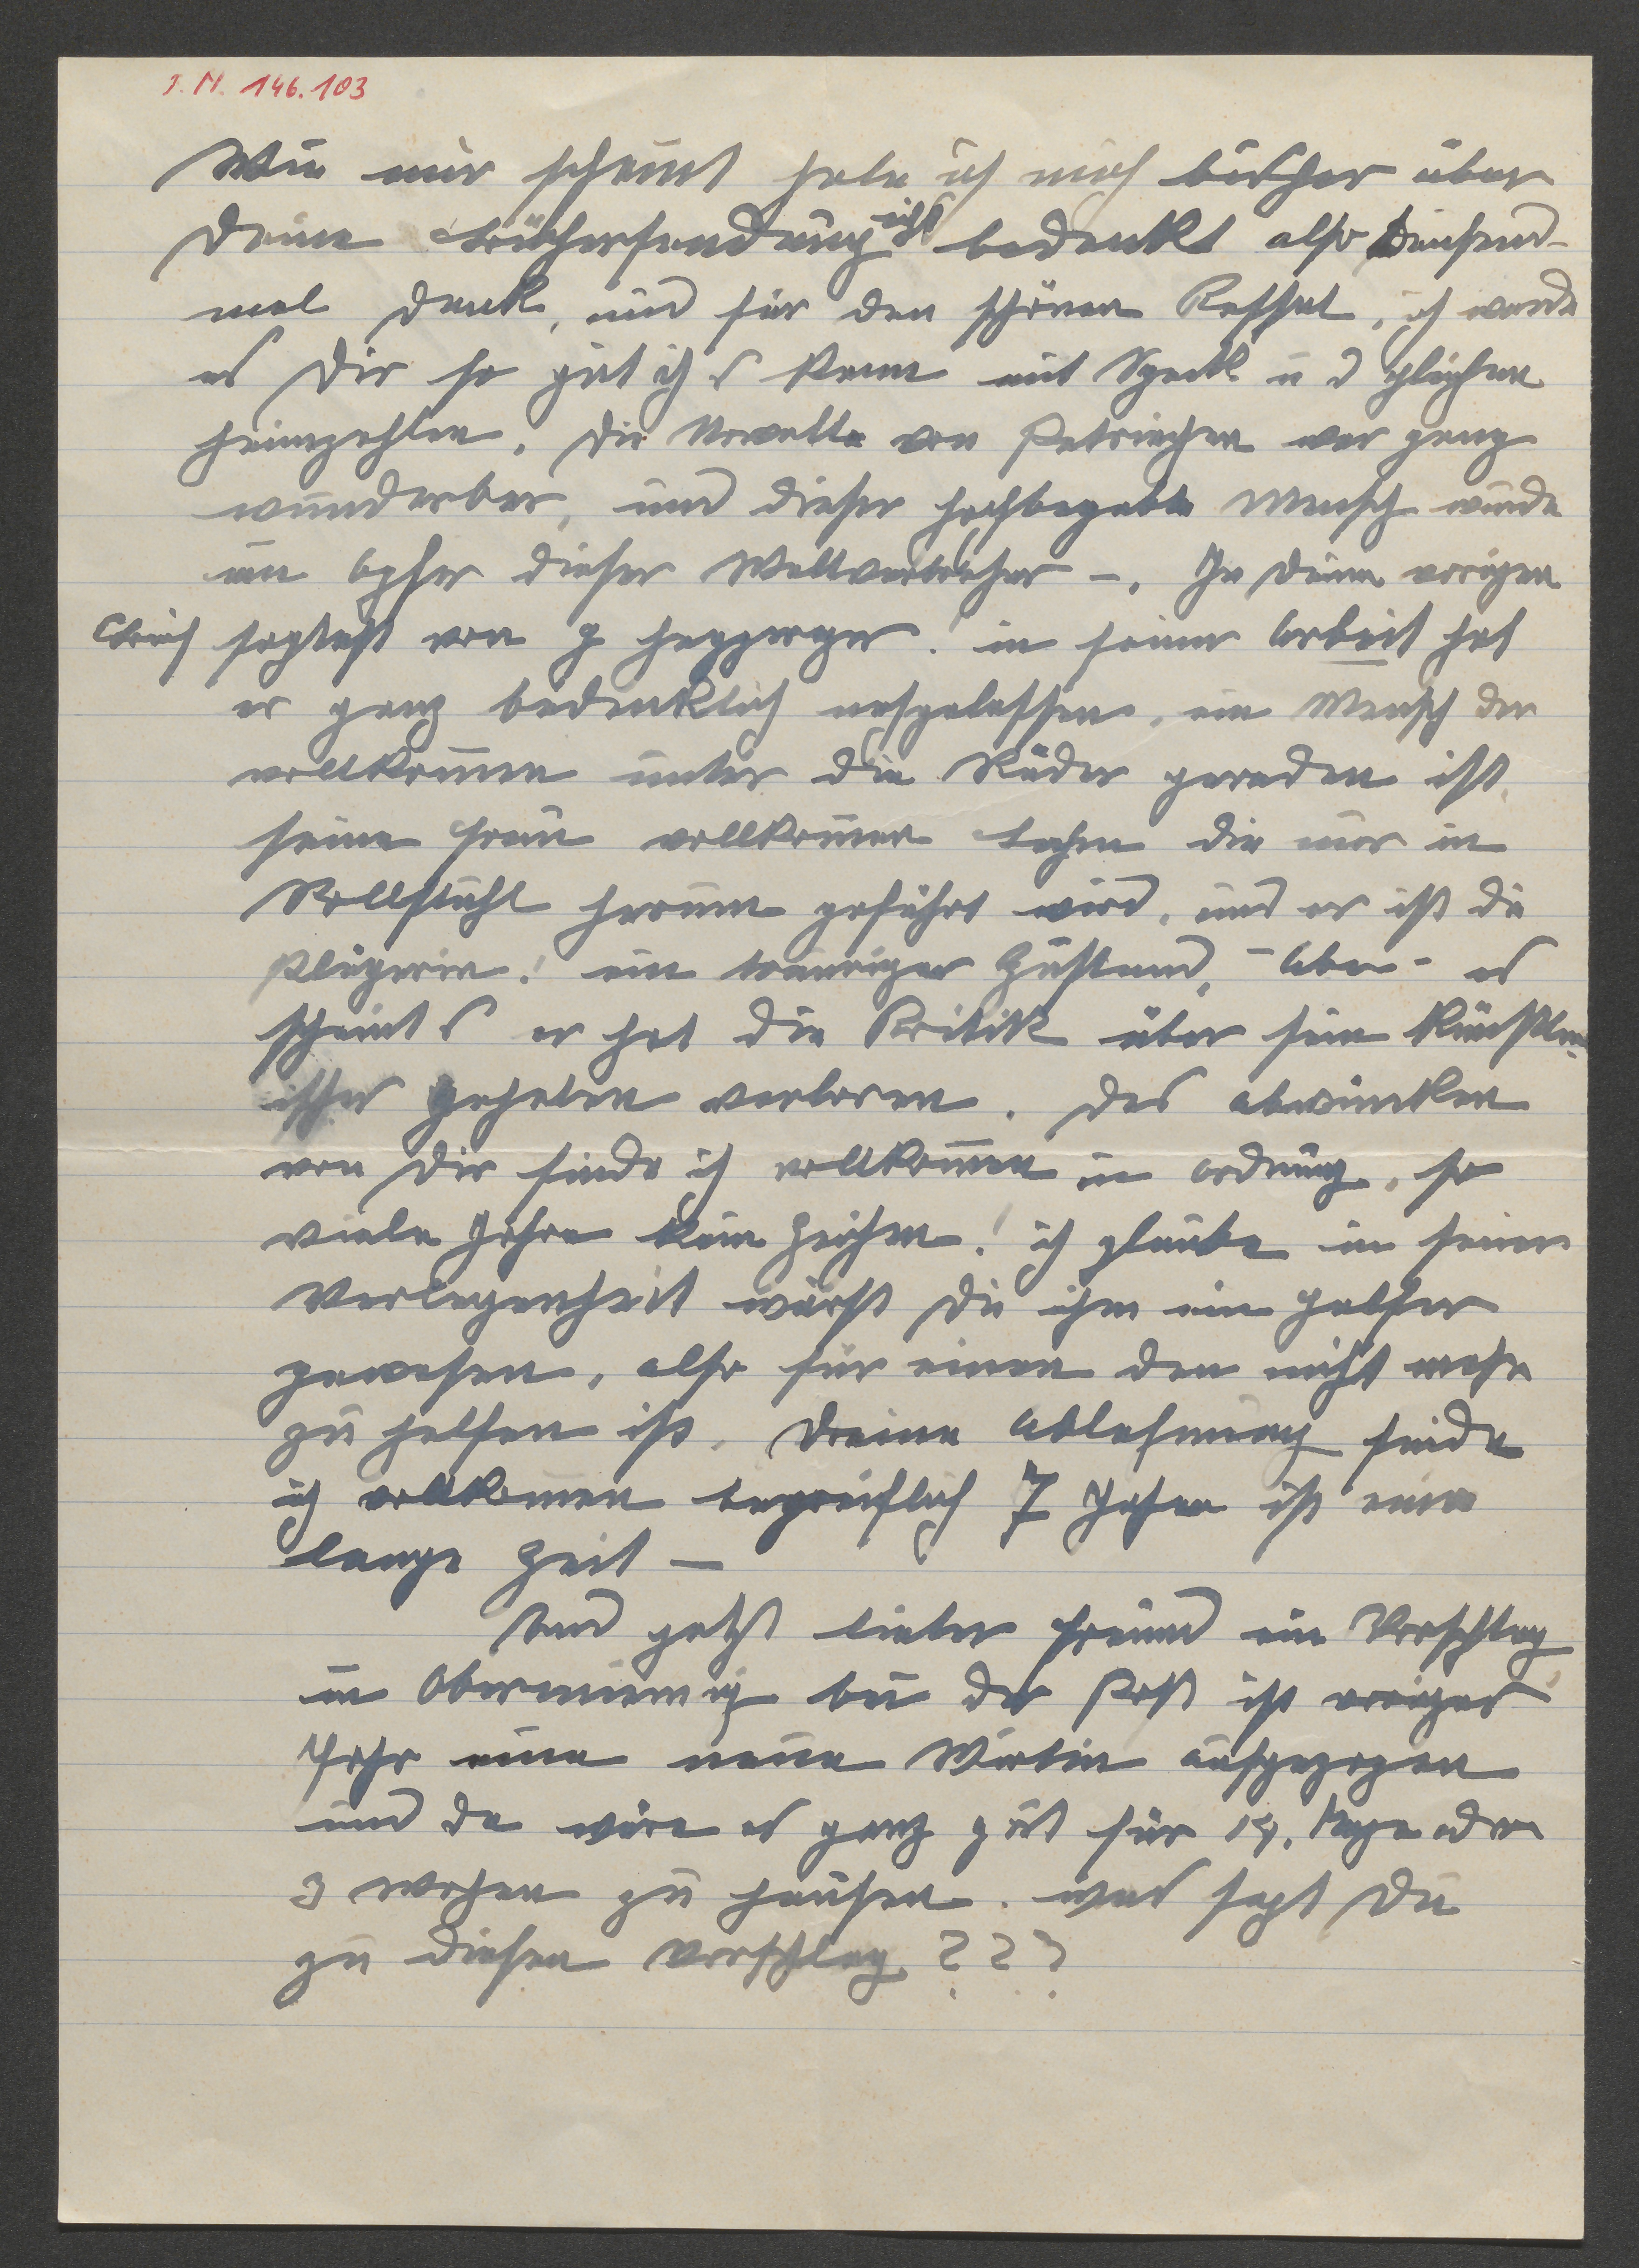 J. N. 146.103
Wie mir scheint habe ich mich bisher über
Deine Büchersendung nicht bedankt also Tausend-
mal Dank, und für den schönen, ich werde
es Dir so gut ich s kann mit Speck u d gleichen
heimzahlen. Die Novelle von war ganz
wunderbar, und dieser hochbegabte Mensch wurde
ein Opfer dieser Weltverbrecher –. In Deinem vorigen
Brief sagtest von. in seiner Arbeit hat
er ganz bedenklich nachgelassen, ein Mensch der
vollkommen unter die Räder geraden ist,
seine Frau vollkommen Lahm die nur in
Rollstuhl herum geführt wird, und er ist die
Pflegerin! ein trauriger Zustand, – Aber – es
scheint s er hat die Kritik über sein Künstler-
isches verloren. Das abwinken
von Dir finde ich vollkommen in Ordnung, so
viele Jahre kein Zeichen! ich glaube in seiner
Verlegenheit wärst Du ihm ein Helfer
gewesen, also für einen dem nicht mehr
zu helfen ist. Deine Ablehnung finde
ich vollkommen begreiflich 7 Jahre ist eine
lange Zeit –
Und jetzt lieber Freund ein Vorschlag
in Obermieming bei der Post ist voriges
Jahr eine neue Wirtin aufgezogen
und da wäre es ganz gut für 14. Tage oder
3 Wochen zu hausen. was sagt Du
zu diesen Vorschlag ???